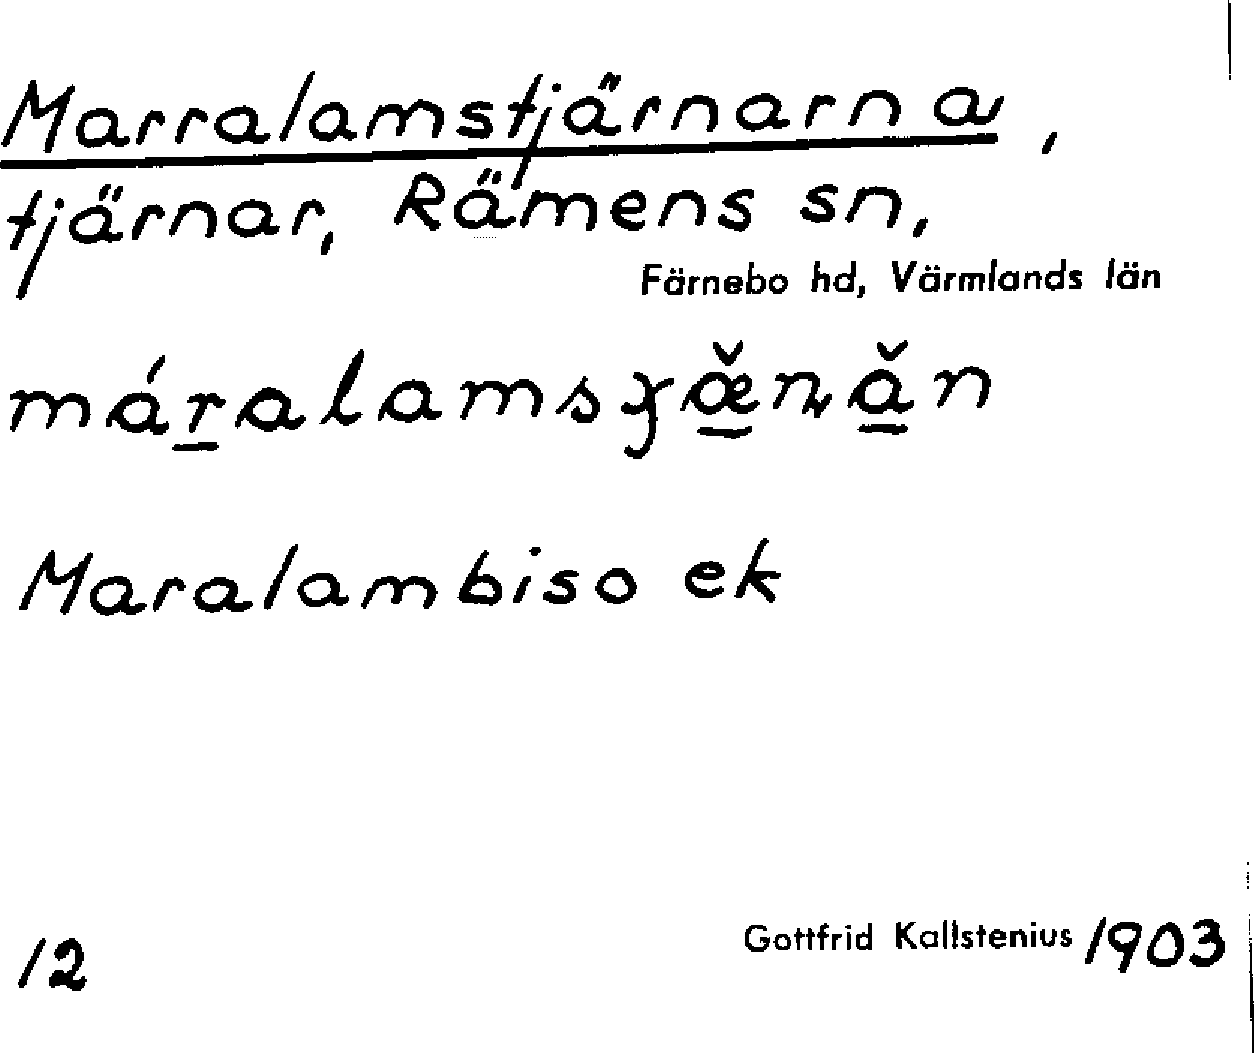 Marralamstjärnarna,
tjärnar, Rämens sn,
Färnebo hd, Värmlands län
Maralambiso ek
12
Gottfrid Kallstenius 1903